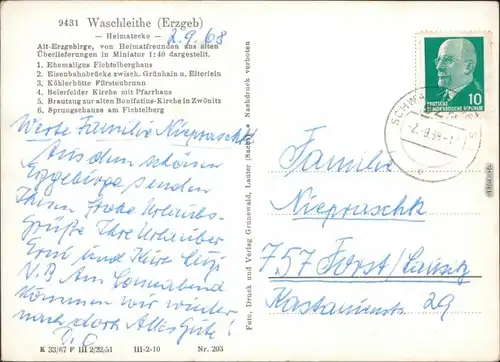 9431 Waschleithe (Erzgeb)
— Heimatecke —
2.9.68
Alt-Erzgebirge, von Heimatfreunden aus alten
Überlieferungen in Miniatur 1:40 dargestellt.
1. Ehemaliges Fichtelberghaus
2. Eisenbahnbrücke zwisch. Grünhain u. Elterlein
3. Köhlerhütte Fürstenbrunn
4. Beierfelder Kirche mit Pfarrhaus
5. Brautzug zur alten Bonifatius-Kirche in Zwönitz
6. Sprungschanze am Fichtelberg
Werte Familie Niepraschk
Aus dem schönen
Erzgebirge senden
Ihnen frohe Urlaubs-
grüße Ihre Urlauber
Erni und Käte
N.B Am Sonnabend
kommen wir wieder
nach dort Alles Gute!
K 33/67 F III 2/22/51 III-2-10 Nr. 203
Foto, Druck und Verlag Grunewald, Lauter (Sachs) · Nachdruck verboten
10
DEUTSCHE
DEMOKRATISCHE REPUBLIK
-2.-9.68
Familie
Niepraschk
757 Forst/Lausitz
Kastanienstr 29